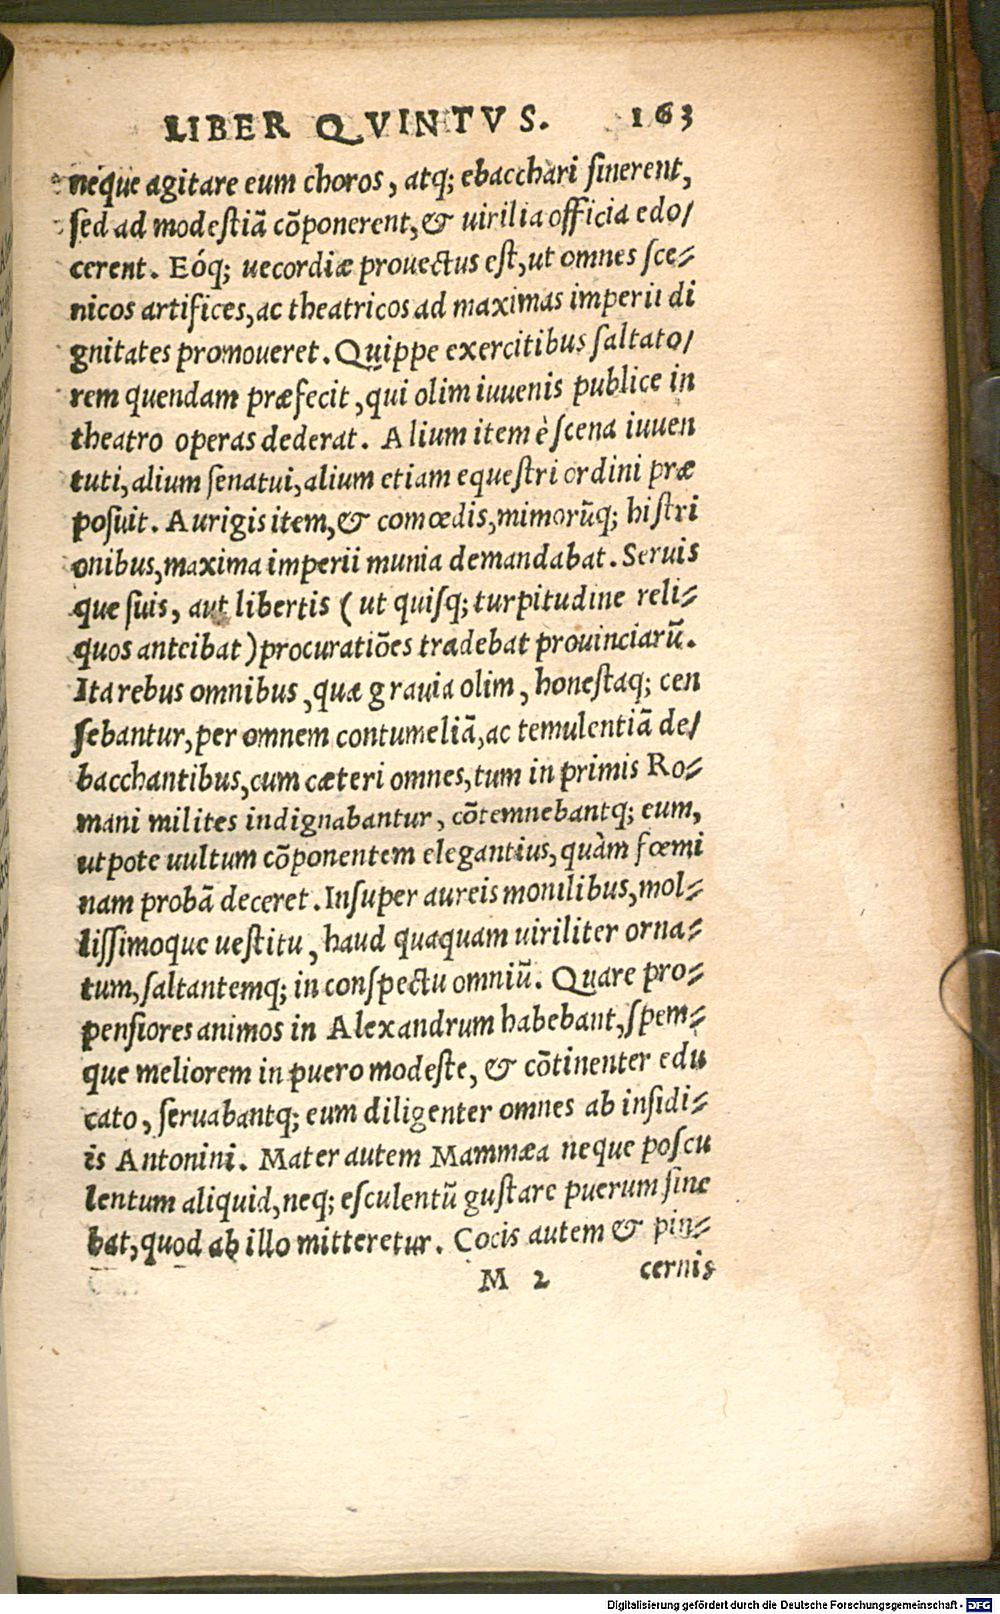 LIBER QVINTVS. 163
neque agitare eum choros, atq; ebacchari sinerent,
sed ad modestiã cõponerent, & uirilia officia edo/
cerent. Eóq; uecordiæ prouectus est, ut omnes sce-
nicos artifices, ac theatricos ad maximas imperii di
gnitates promoueret. Quippe exercitibus saltato/
rem quendam præfecit, qui olim iuuenis publice in
theatro operas dederat. Alium item è scena iuuen
tuti, alium senatui, alium etiam equestri ordini præ
posuit. Aurigis item, & comœdis, mimorũq; histri
onibus, maxima imperii munia demandabat. Seruis
que suis, aut libertis (ut quisq; turpitudine reli-
quos anteibat) procuratiões tradebat prouinciarũ.
Ita rebus omnibus, quæ grauia olim, honestaq; cen
sebantur, per omnem contumeliã, ac temulentiã de/
bacchantibus, cum cæteri omnes, tum in primis Ro-
mani milites indignabantur, cõtemnebantq; eum,
utpote uultum cõponentem elegantius, quàm fœmi
nam probã deceret. Insuper aureis monilibus, mol-
lissimoque uestitu, haud quaquam uiriliter orna-
tum, saltantemq; in conspectu omniũ. Quare pro-
pensiores animos in Alexandrum habebant, spem-
que meliorem in puero modeste, & cõtinenter edu
cato, seruabantq; eum diligenter omnes ab insidi-
is Antonini. Mater autem Mammæa neque poscu
lentum aliquid, neq; esculentũ gustare puerum sine
bat, quod ab illo mitteretur. Cocis autem & pin-
M 2 cernis
Digitalisierung gefördert durch die Deutsche Forschungsgemeinschaft - DFG